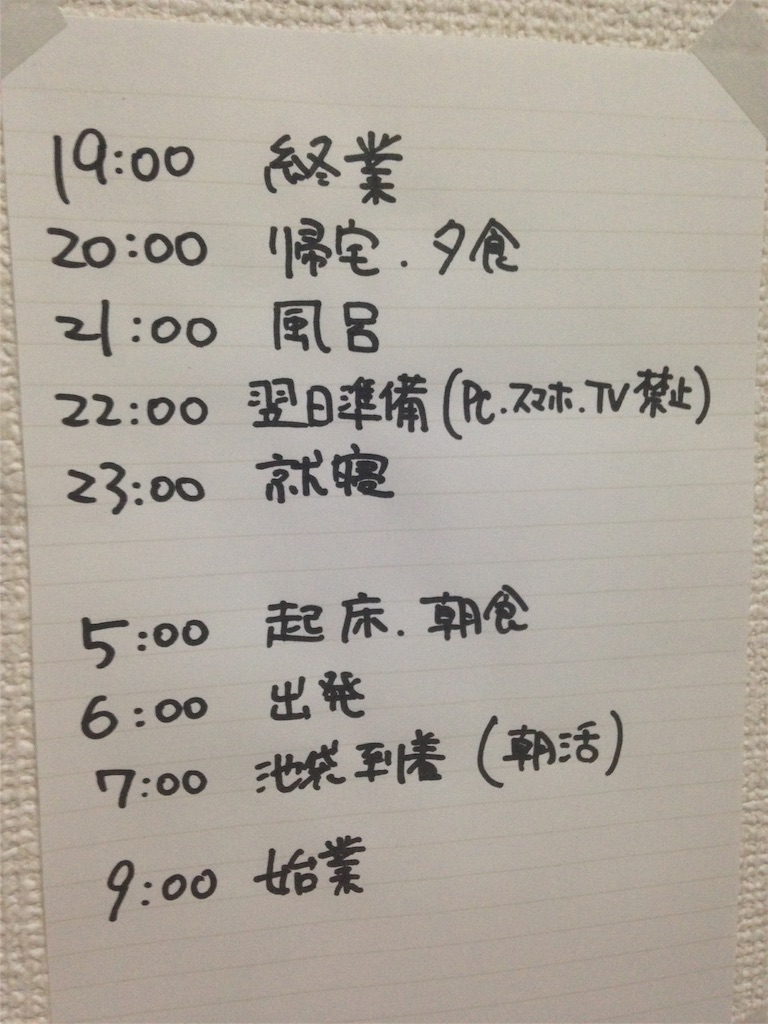 19:00 終業
20:00 帰宅.夕食
21:00 風呂
22:00 翌日準備(PC.スマホ.TV禁止)
23:00 就寝
5:00 起床.朝食
6:00 出発
7:00 池袋到着(朝活)
9:00 始業